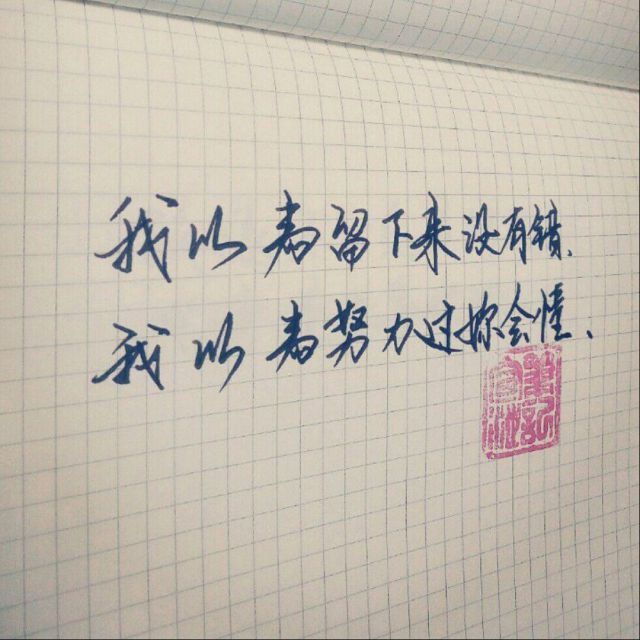 我以為留下来没有错、
我以為努力过你会懂、